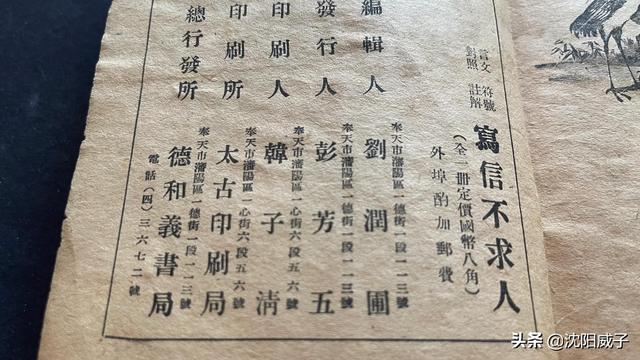 言文 符號
對照 註解
寫信不求人
(全一冊定價國幣八角)
外埠酌加郵費
編輯人
奉天市瀋陽區一德街一段一一三號
劉潤圃
發行人
奉天市瀋陽區一德街一段一一三號
彭芳五
印刷人
奉天市瀋陽區一心街六段五六號
韓子清
印刷所
奉天市瀋陽區一心街六段五六號
太古印刷局
總行發所
奉天市瀋陽區一德街一段一一三號
德和義書局
電話(四)三六七二號
头条 @沈阳威子